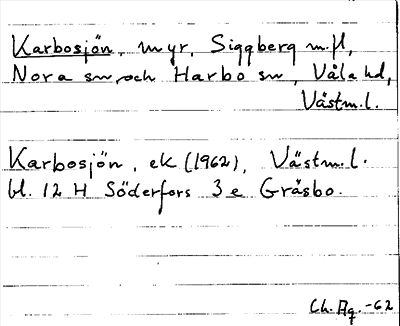 Karbosjön, myr, Siggberg m.fl,
Nora sn och Harbo sn, Våla hd,
Västm.l.
Karbosjön, ek (1962), Västm.l.
bl. 12 H Söderfors 3 e Gräsbo.
Ch. Ag. -62